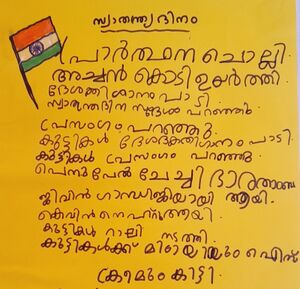 സ്വാതന്ത്ര്യദിനം
പ്രാർത്ഥന ചൊല്ലി.
അച്ചൻ കൊടി ഉയർത്തി.
ദേശഭക്തിഗാനം പാടി
സ്വാതന്ത്ര്യദിന പറഞ്ഞു.
പ്രസംഗം പറഞ്ഞു.
കുട്ടികൾ ദേശഭക്തിഗാനം പാടി
കുട്ടികൾ പ്രസംഗം പറഞ്ഞു.
ചേച്ചി
ജിവിൻ ഗാന്ധിജിയായി ആയി.
കെവിൻ നെഹ്റുആയി.
കുട്ടികൾ റാലി നടത്തി.
കുട്ടികൾക്ക് മിഠായിയും ഐസ്
ക്രീമും കിട്ടി.